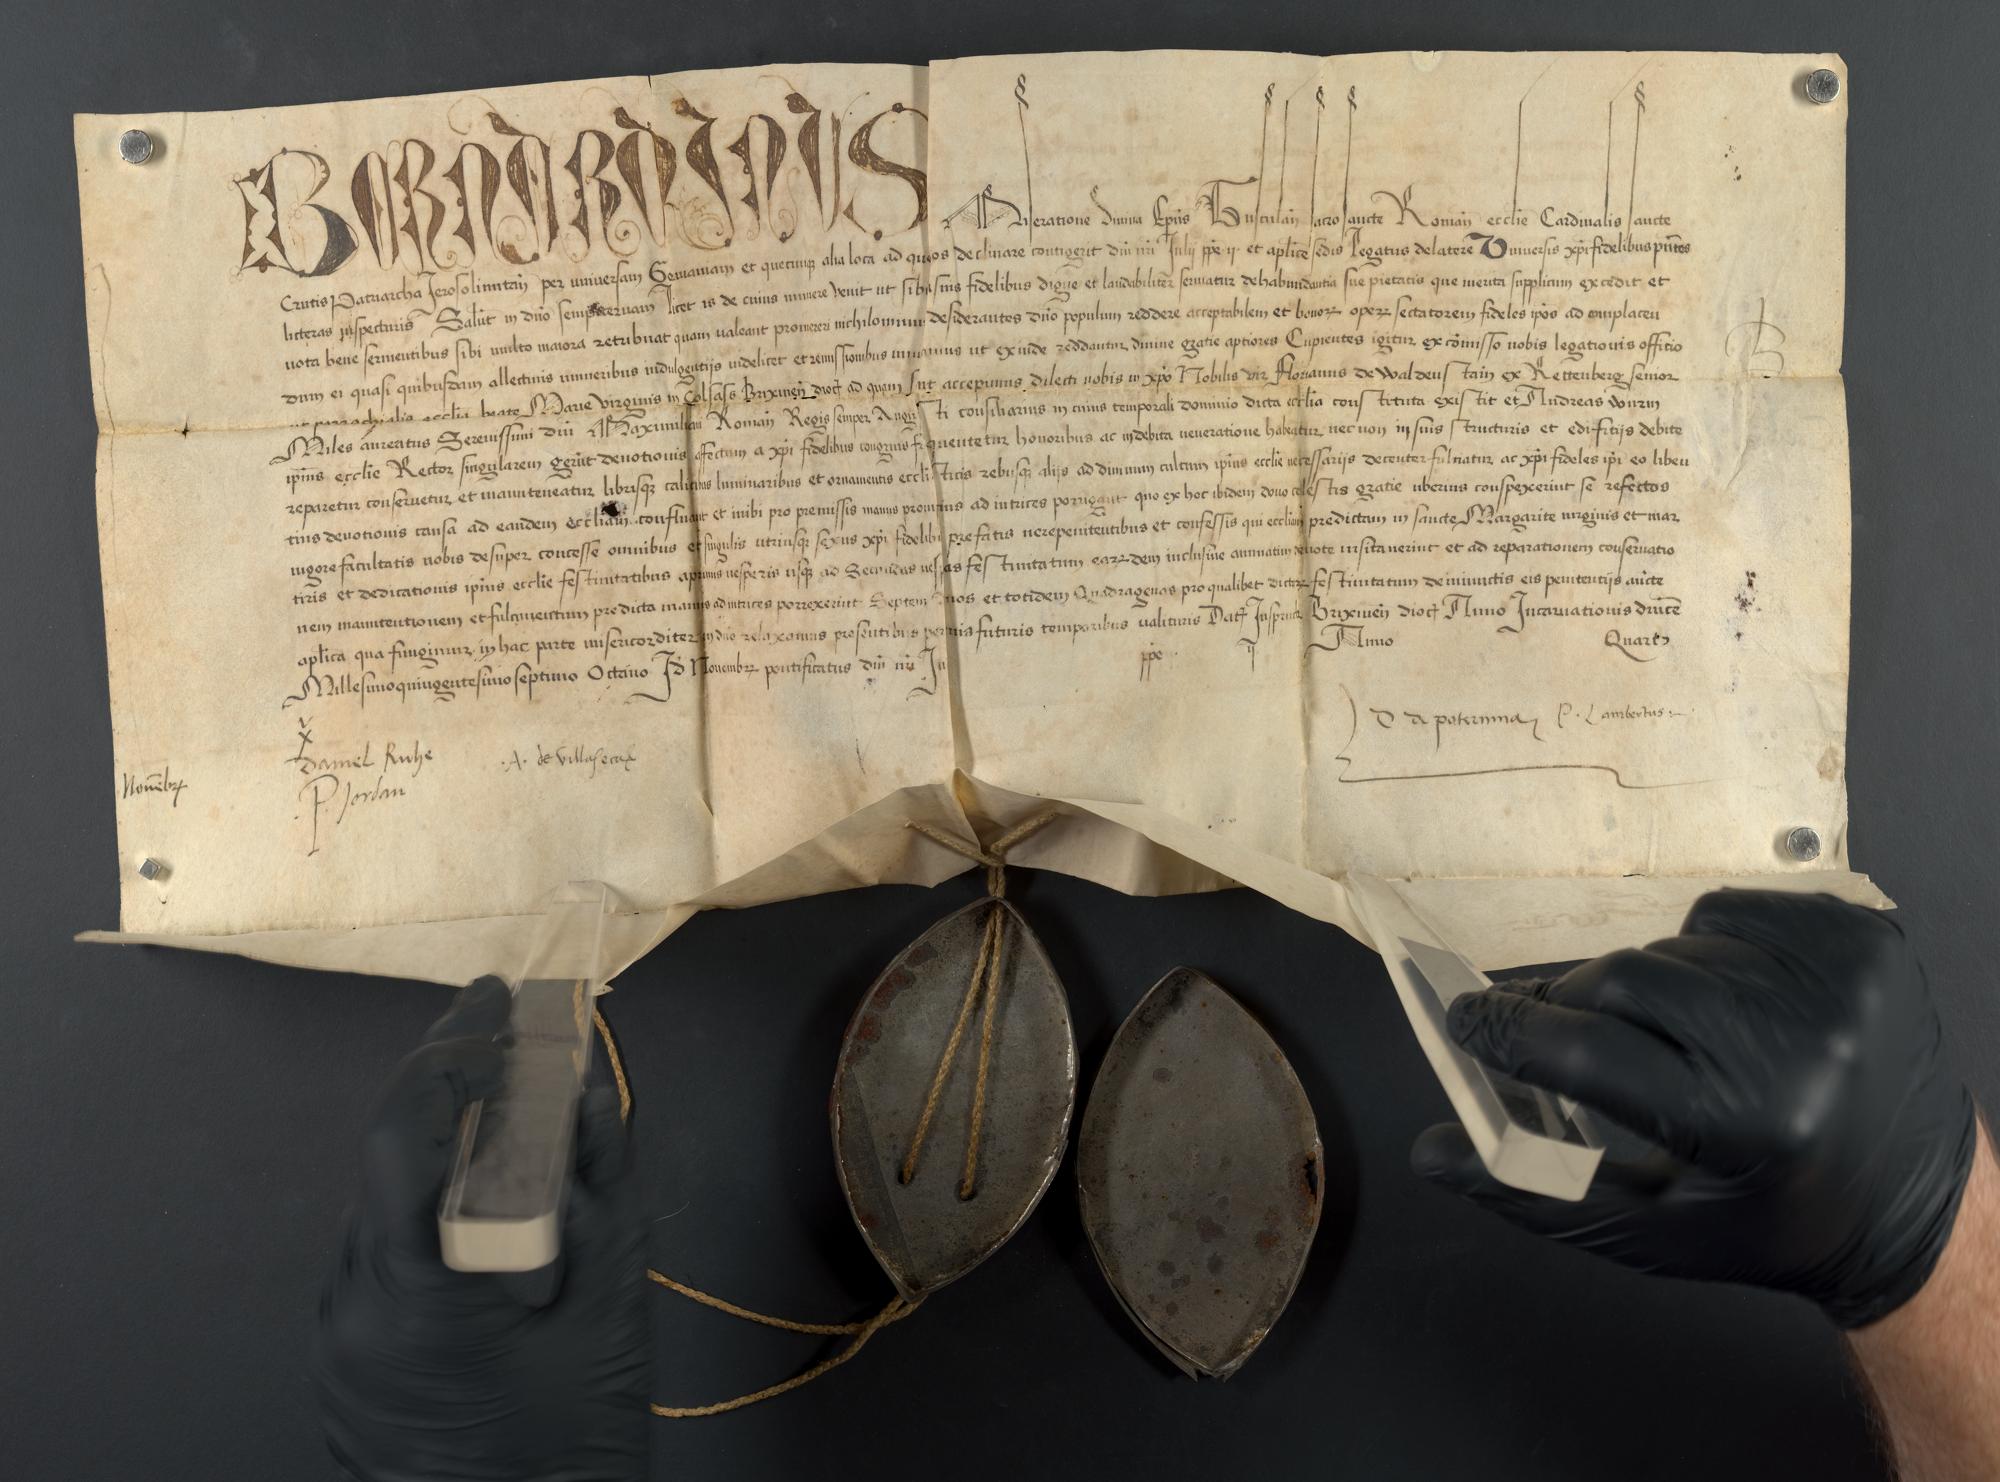 BERNARDINUS Miseratione divina Ep̃us Tusculañ sacro sancte Romañ ecclie Cardinalis sancte
Crucis Patriarcha Jerosolimitañ per universam Germaniam et quecunqꝫ alia loca ad quos declinare contigerit dñi nr̃i Julij ppe ij et aplice sedis Legatus de latere Universis xp̃i fidelibus pñtes
licteras inspecturis Salut̃ in dño sempiternam Licet is de cuius munere venit ut sibi a suis fidelibus digne et laudabiliter serviatur de habundantia sue pietatis que merita supplicum excedit et
vota bene servientibus sibi multo maiora retribuat quam valeant promereri nichilominus desiderantes dño populum reddere acceptabilem et bonoꝝ operꝝ sectatorem fideles ip̃os ad complacen
dum ei quasi quibusdam allectivis muneribus indulgentijs videlicet et remissionibus invitamus ut exinde reddantur divine gratie aptiores Cupientes igitur ex cõmisso nobis legationis officio
ut parrochialis ecclia beate Marie virginis in Colsass Brixineñ dioc̃ ad quam sic̃ accepimus dilecti nobis in xp̃o Nobilis vir Florianus de Waldens tain ex Rettenberg senior
Miles auratus Serenissimi dñi Maximiliani Romañ Regis semper Augusti consiliarius in cuius temporali dominio dicta ecclia constituta existit et Andreas wurm
ip̃ius ecclie Rector singularem gerũt devotionis affectum a xp̃i fidelibus congruis frequentetur honoribus ac in debita veneratione habeatur nec non in suis structuris et edifitijs debite
reparetur conservetur et manuteneatur librisqꝫ calicibus luminaribus et ornamentis ecclisticis rebusqꝫ alijs ad divinum cultum ip̃ius ecclie necessarijs decenter fulciatur ac xp̃i fideles ip̃i eo liben
tius devotionis causa ad eandem eccliam confluant et inibi pro premissis manus promptius adiutrices porrigant quo ex hoc ibidem dono celestis gratie uberius conspexerint se refectos
vigore facultatis nobis desuper concesse omnibus et singulis utriusqꝫ sexus xp̃i fidelibꝫ prefatis vere penitentibus et confessis qui eccliam predictam in sancte Margarite virginis et mar
tiris et dedicationis ip̃ius ecclie festivitatibus a primis vesperis usqꝫ ad Secundas vesperas festivitatum earꝝdem inclusive annuatim devote visitaverint et ad reparationem conservatio
nem manutentionem et fulcimentum predicta manus adiutrices porrexerint Septem Annos et totidem Quadragenas pro qualibet dictarꝝ festivitatum de iniunctis eis penitentijs aucte
aplica qua fungimur in hac parte misericorditer in dño relaxamus presentibus perpetuis futuris temporibus valituris Dat̃ Insprucz Brixineñ dioc̃ Anno Incarnationis dñice
Millesimoquingentesimoseptimo Octavo Id̃ Novembrꝫ pontificatus dñi nr̃i Ju ppe ij Anno Quarto
D de poternina P. Lambertus
v
x
Daniel Ruhe A. de villasecax
P. Jordan
Novẽbrꝫ